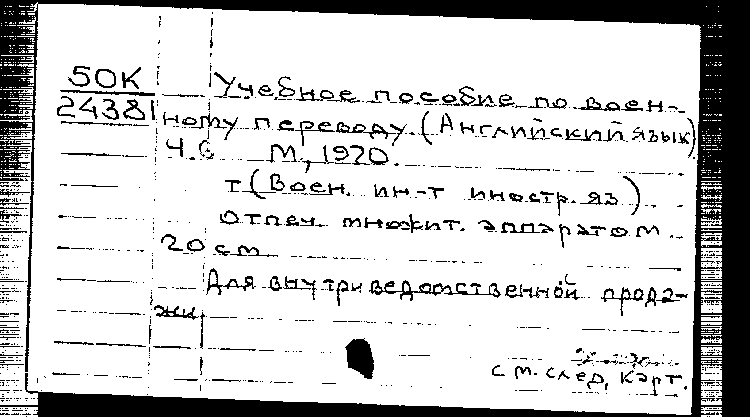 50К
24381
Учебное пособие по воен-
ному переводу. (Английский язык)
Ч. 6 М., 1970.
т (Воен. ин-т иностр. яз)
Отпеч. множит. аппаратом.
20 см
Для внутриведомственной прода-
жи.
см. след. карт.